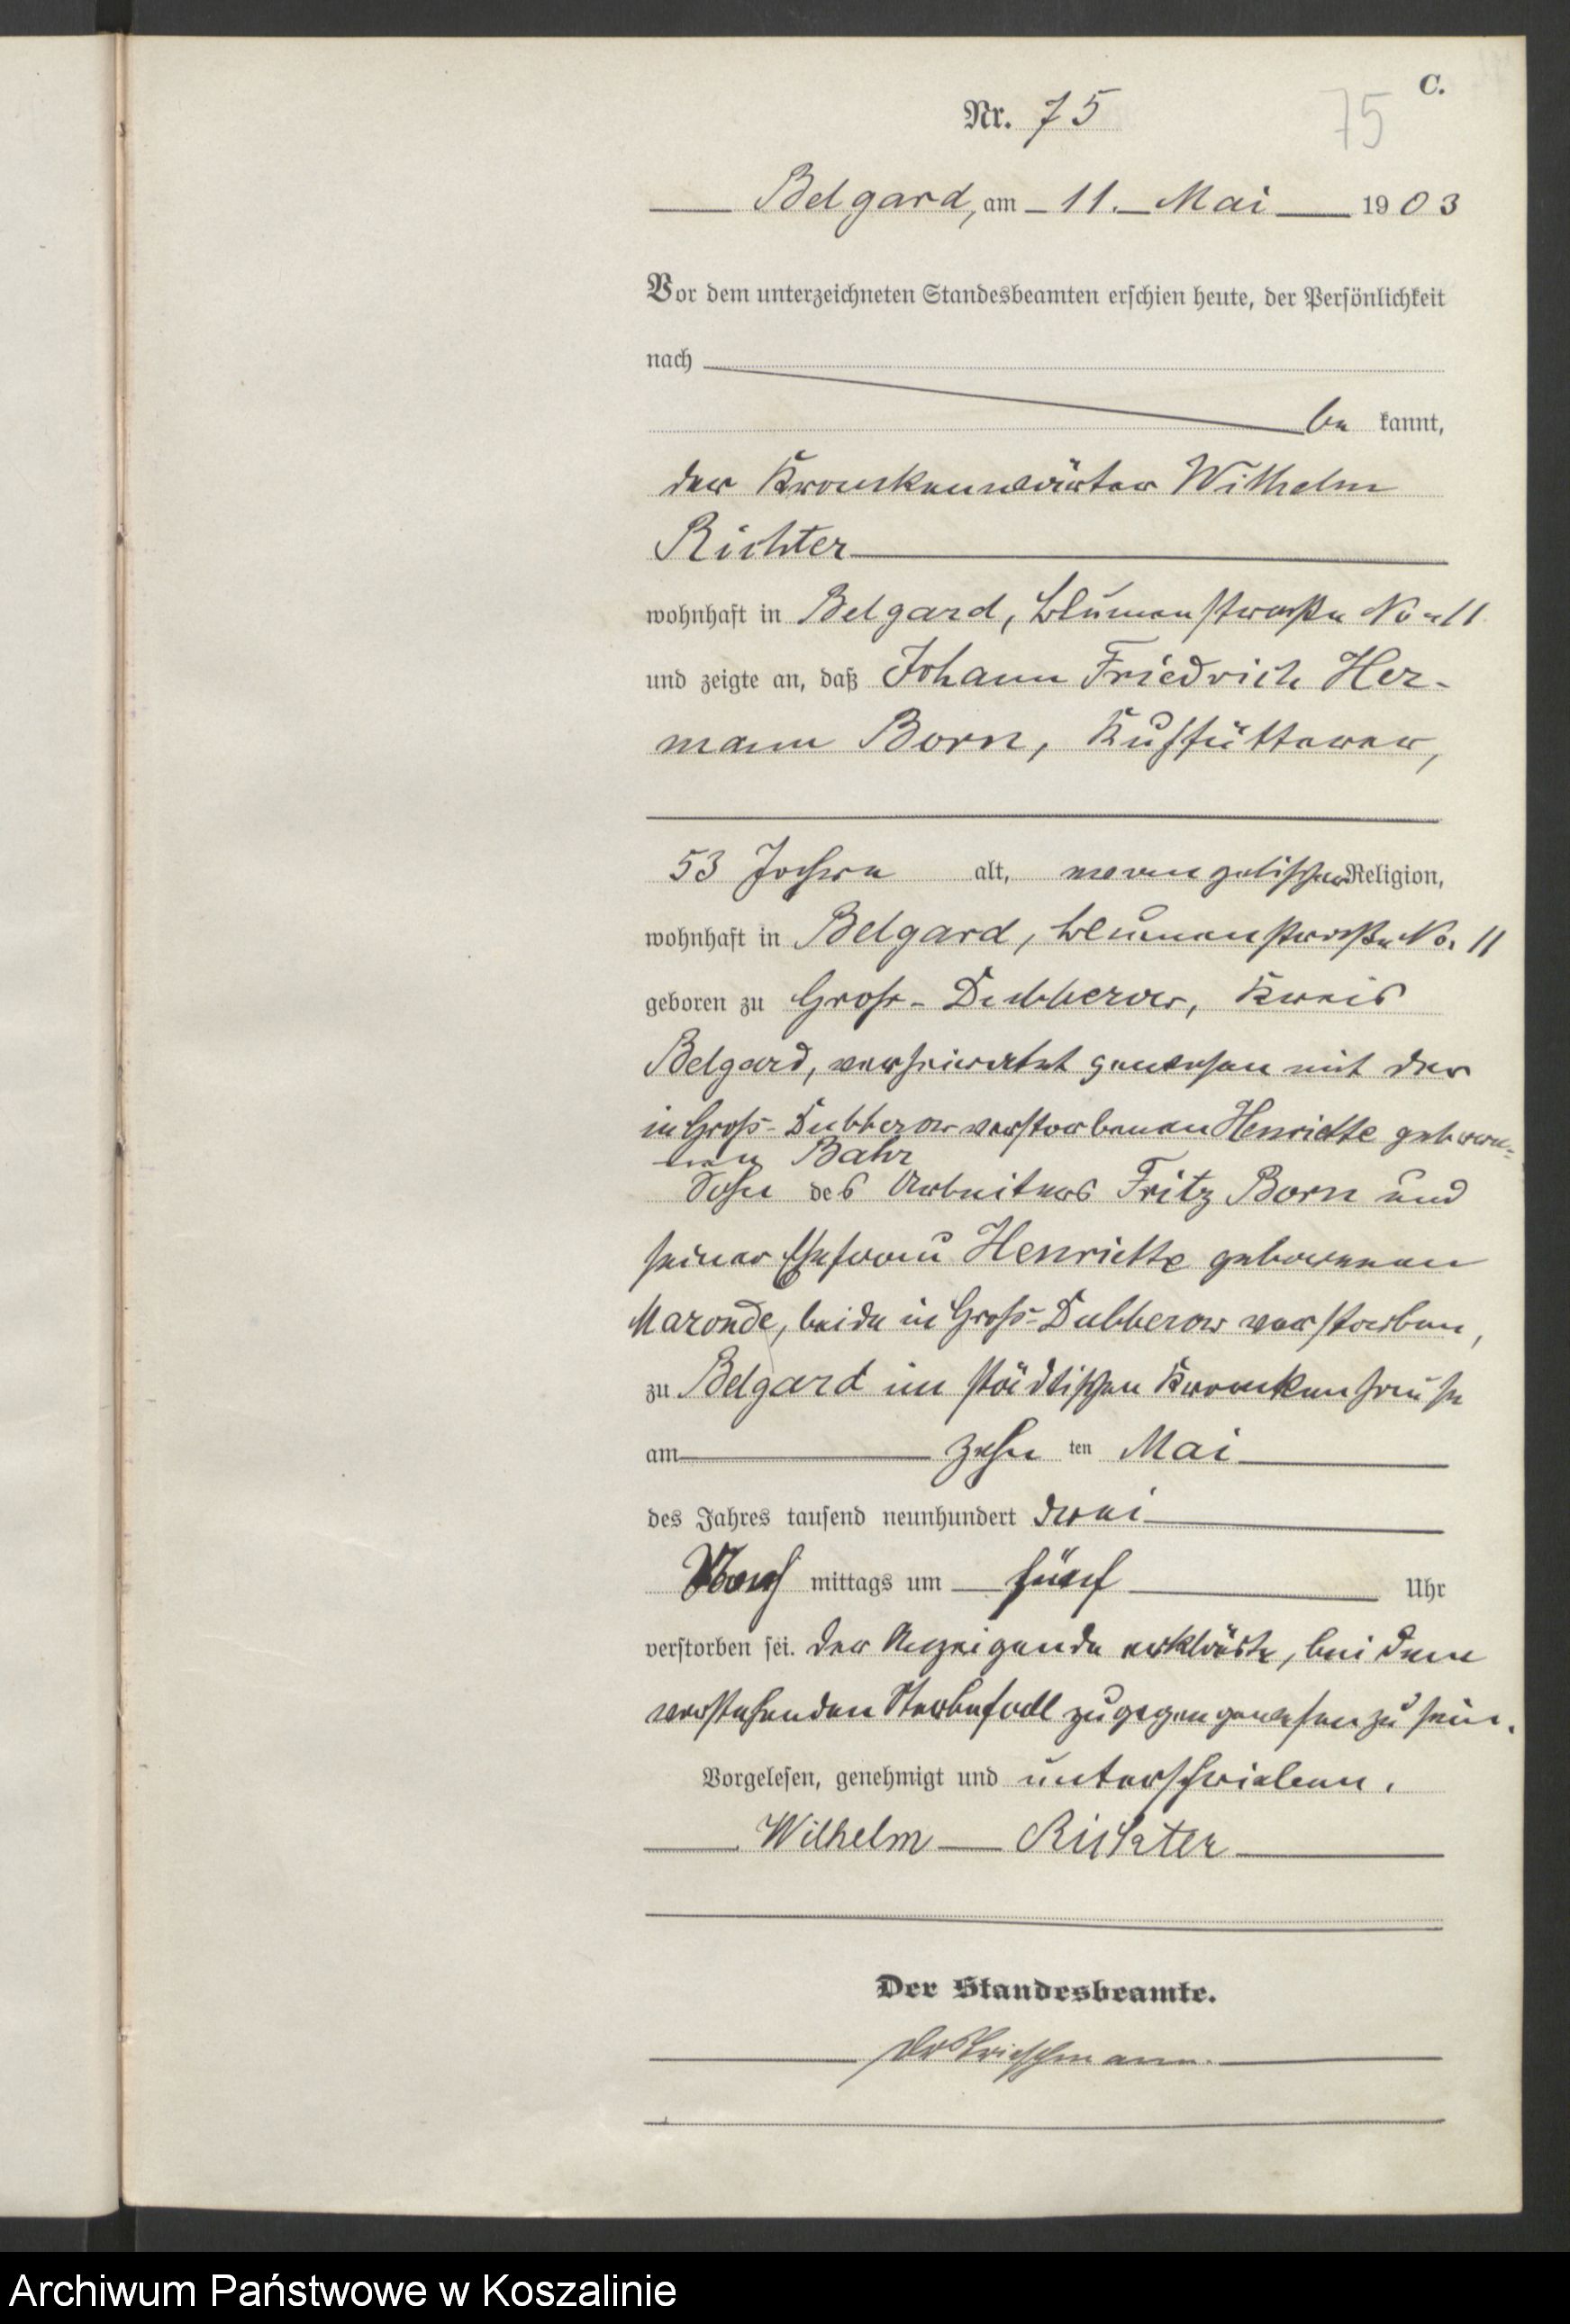 C.
Nr. 75
75
Belgard, am 11. Mai 1903
Vor dem unterzeichneten Standesbeamten erschien heute, der Persönlichkeit
nach
be kannt,
der Krankenwärter Wilhelm
Richter
wohnhaft in Belgard, Blumenstraße No 11
und zeigte an, daß Johann Friedrich Her-
mann Born, Kuhfütterer,
53 Jahre alt, evangelischer Religion,
wohnhaft in Belgard, Blumenstraße No. 11
geboren zu Groß-Dubberow, Kreis
Belgard, verheiratet gewesen mit der
in Groß-Dubberow verstorbenen Henriette gebore-
nen Bahr
Sohn des Arbeiters Fritz Born und
seiner Ehefrau Henriette geborenen
Maronde, beide in Groß-Dubberow verstorben,
zu Belgard im städtischen Krankenhause
am zehn ten Mai
des Jahres tausend neunhundert drei
Nach mittags um fünf Uhr
verstorben sei. Der Anzeigende erklärte, bei dem
vorstehenden Sterbefall zugegen gewesen zu sein.
Vorgelesen, genehmigt und unterschrieben.
Wilhelm Richter
Der Standesbeamte.
Archiwum Państwowe w Koszalinie